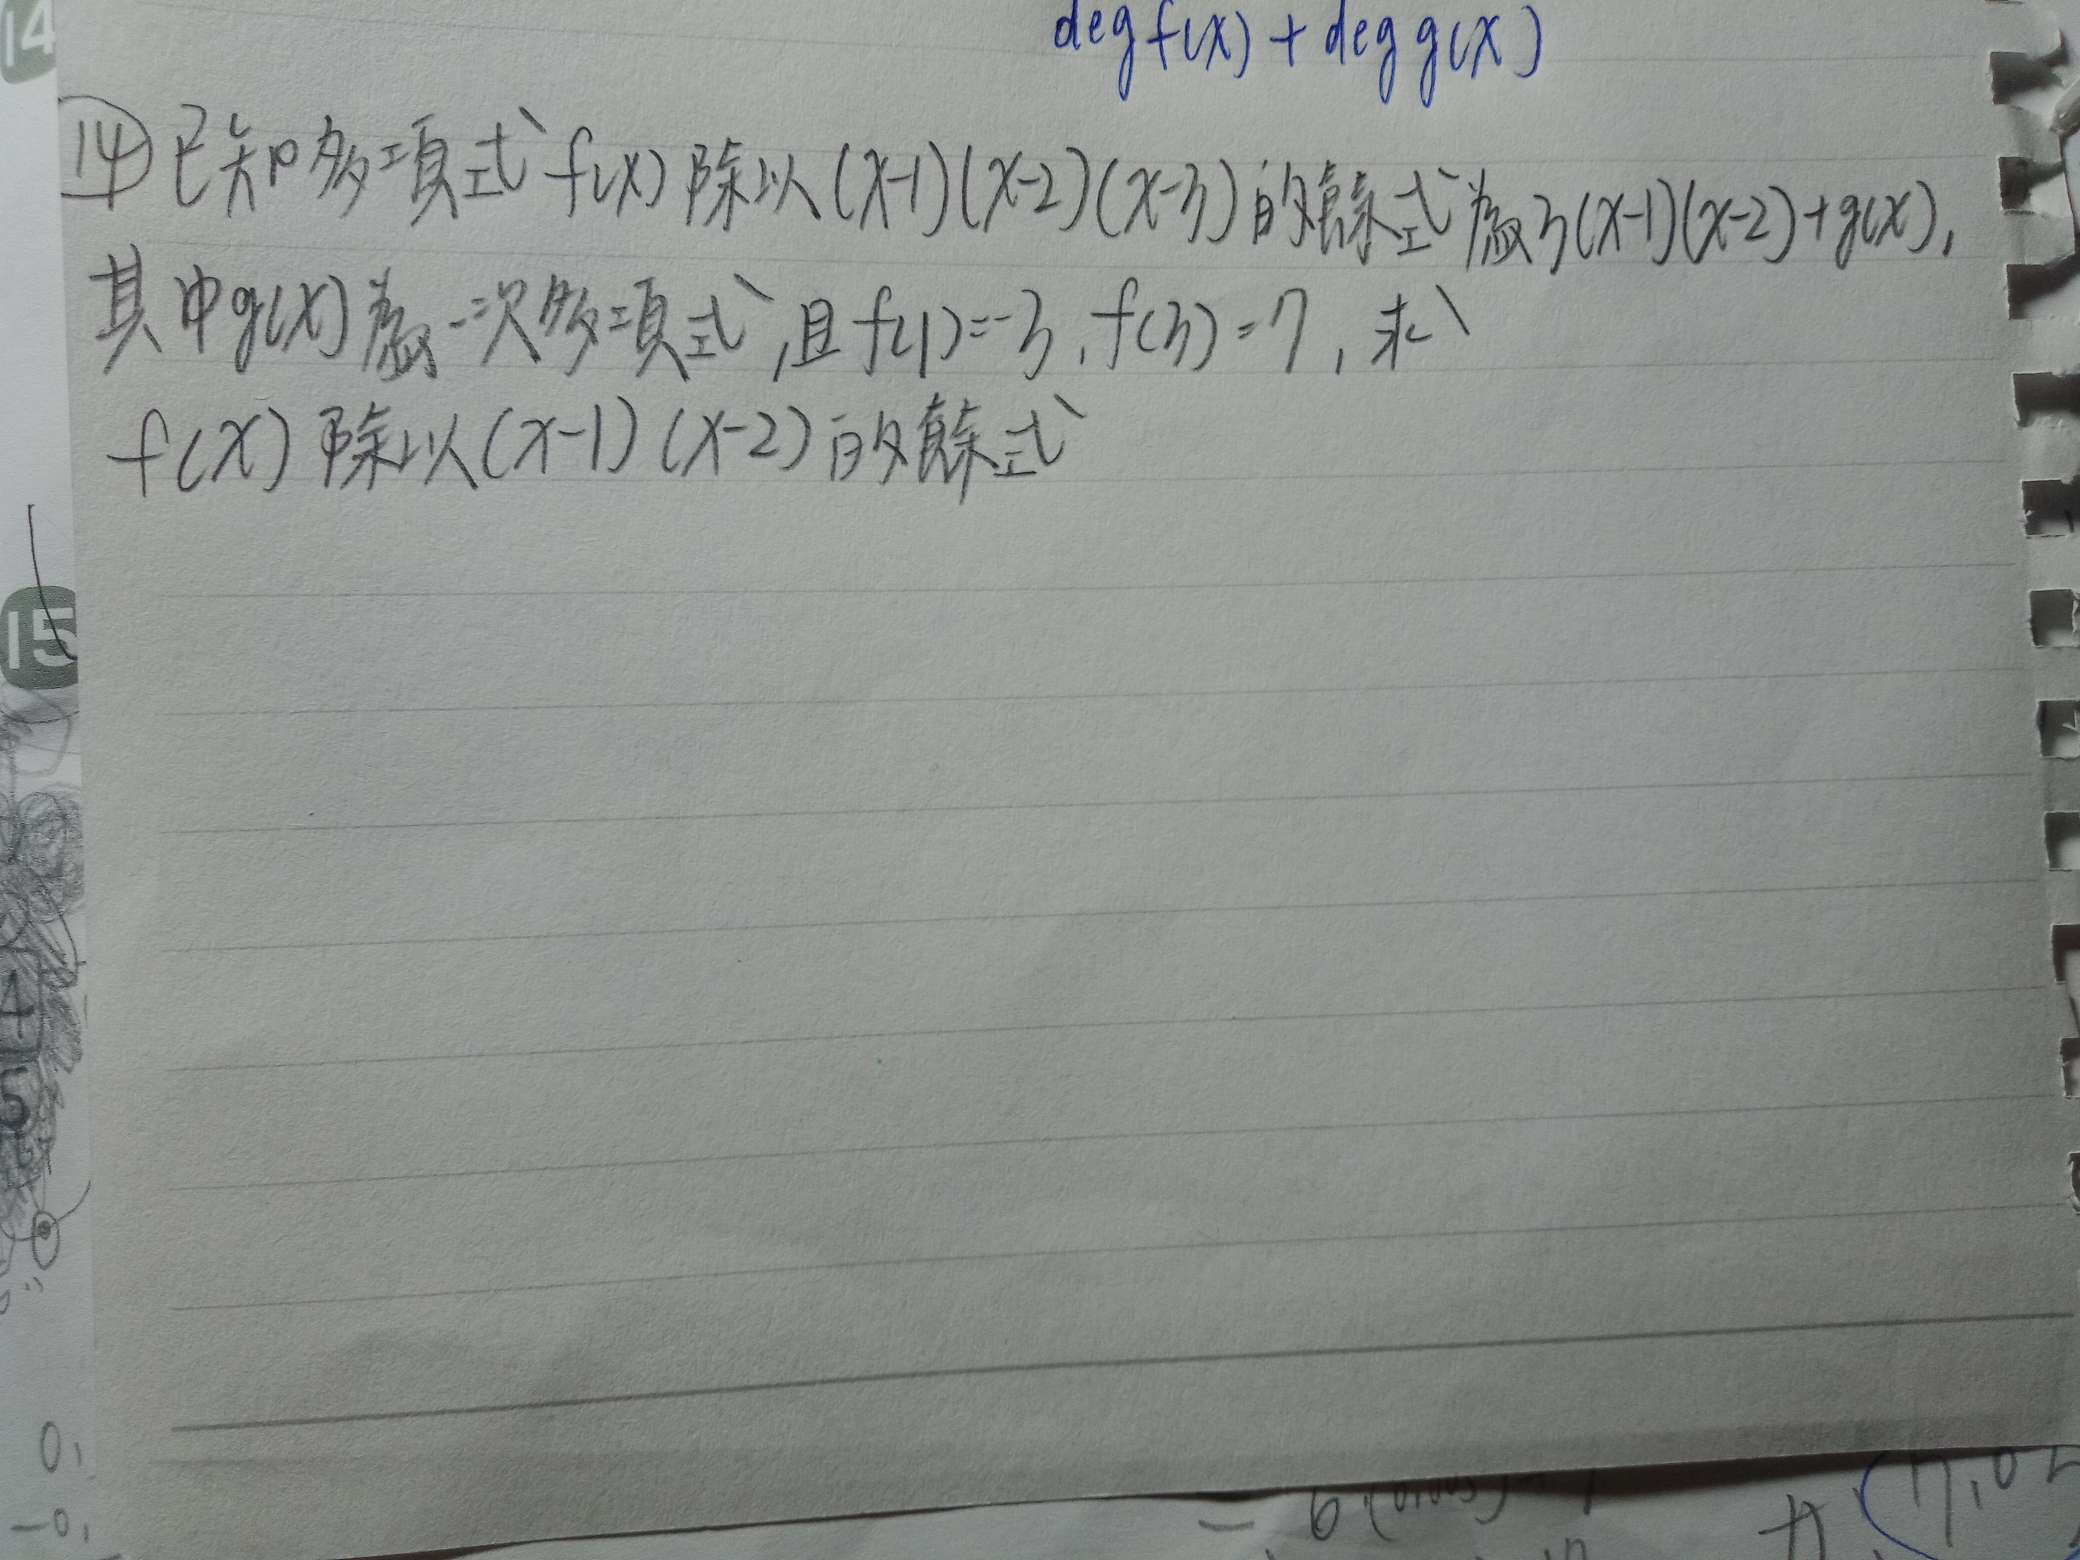 14
deg f(x) + deg g(x)
⑭ 已知多項式 f(x) 除以 (x-1)(x-2)(x-3) 的餘式為 3(x-1)(x-2)+g(x),
其中g(x)為一次多項式,且 f(1)=-3, f(3)=7, 求
f(x) 除以 (x-1)(x-2) 的餘式
15
4
5
0,
-0,